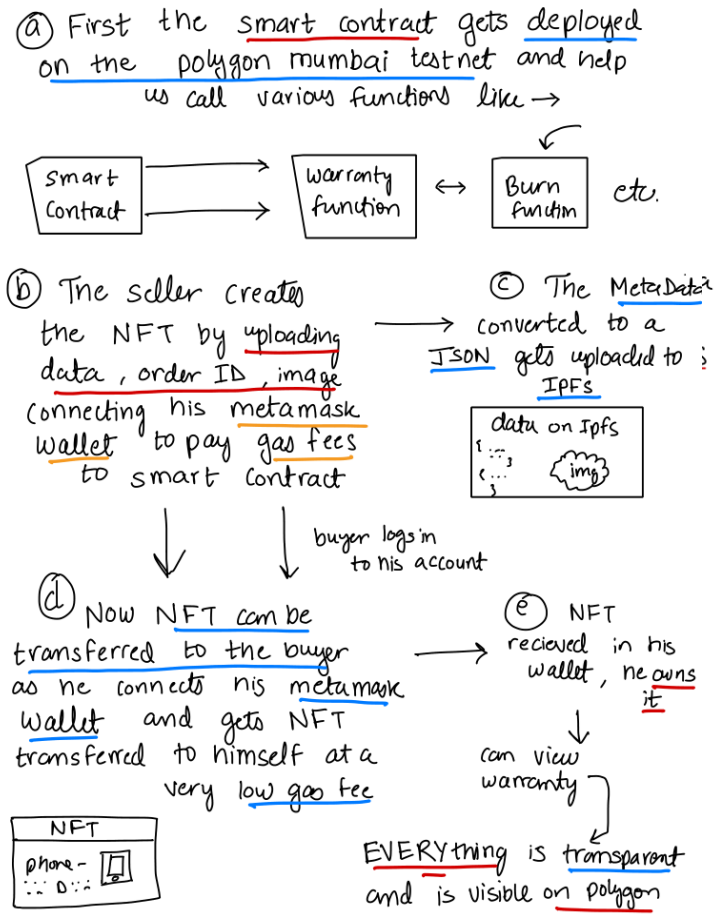 a First the smart contract gets deployed
on the polygon mumbai testnet and help
us call various functions like →
smart
Contract
Warranty
function
Burn
function
etc.
b The seller creates
the NFT by uploading
data, order ID, image
connecting his metamask
wallet to pay gas fees
to smart contract
c The MetaData
converted to a
JSON gets uploaded to
IPFs
data on Ipfs
{ ...
}
{ ...
}
img
buyer logs in
to his account
d Now NFT can be
transferred to the buyer
as he connects his metamask
wallet and gets NFT
transferred to himself at a
very low gas fee
e NFT
recieved in his
wallet, he owns
it
can view
warranty
EVERYthing is transparent
and is visible on polygon
NFT
phone -